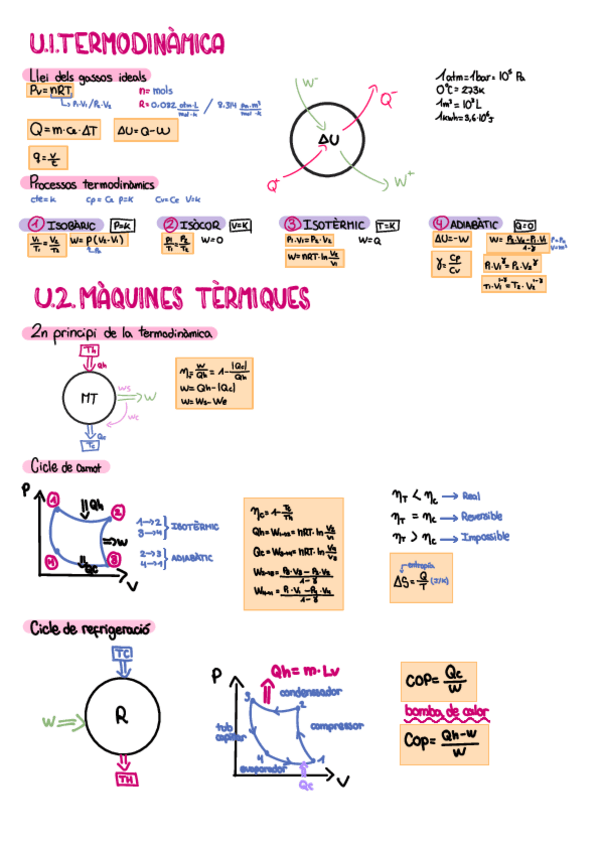 U.1.TERMODINÀMICA
Llei dels gasos ideals
Pv = nRT
n= mols
↳ P1·V1/P2·V2
R= 0.082 atm·L/mol·k / 8.314 Pa·m³/mol·k
Q = m·Ce·ΔT
ΔU = Q-W
q = v/t
W⁻
Q⁻
ΔU
Q⁺
W⁺
1atm = 1bar = 10⁵ Pa
0°C = 273K
1m³ = 10³ L
1kwh = 3,6·10⁶J
Processos termodinàmics
cte=k
cp = Ce p=k
Cv= Ce V=k
1 ISOBÀRIC P=k
V1/T1 = V2/T2
W= P(V2-V1)
2 ISÒCOR V=k
P1/T1 = P2/T2
W=0
3 ISOTÈRMIC T=k
P1·V1= P2·V2
W=Q
W= nRT·ln V2/V1
4 ADIABÀTIC Q=0
ΔU=-W
W= P2·V2-P1·V1/1-γ
γ= Cp/Cv
P1·V1^γ = P2·V2^γ
T1·V1^γ-1 = T2·V2^γ-1
U.2. MÀQUINES TÈRMIQUES
2n principi de la termodinàmica
Th
Qh
MT
W
Qc
Tc
η= W/Qh = 1- |Qc|/Qh
W= Qh-|Qc|
Cicle de Carnot
P
1
2
3
4
Qh
W
Qc
V
1→2
3→4
ISOTÈRMIC
2→3
4→1
ADIABÀTIC
ηc = 1- Tc/Th
Qh= W1→2= nRT·ln V2/V1
Qc= W3→4= nRT·ln V4/V3
W2→3= P3·V3 - P2·V2/1-γ
W4→1= P1·V1 - P4·V4/1-γ
ηT < ηc → Real
ηT = ηc → Reversible
ηT > ηc → Impossible
entropia
ΔS= Q/T (J/K)
Cicle de refrigeració
TC
W
R
TH
P
Qh= m·Lv
condensador
3
2
tub capilar
compressor
4
1
evaporador
Qc
V
COP= Qc/W
bomba de calor
COP= Qh-W/W